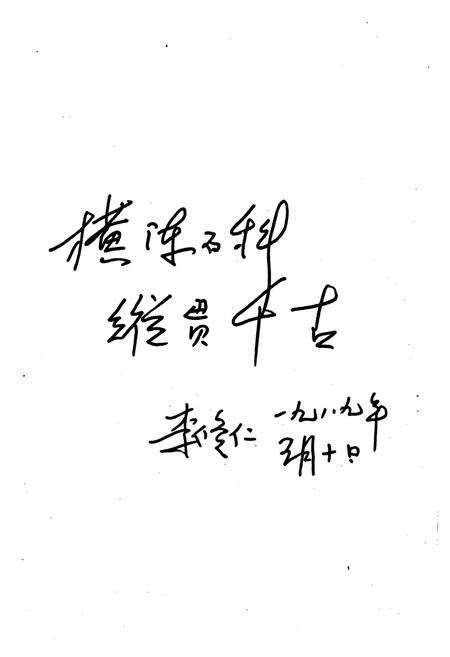 横陈百科
纵贯千古
李修仁 一九八九年
五月十日